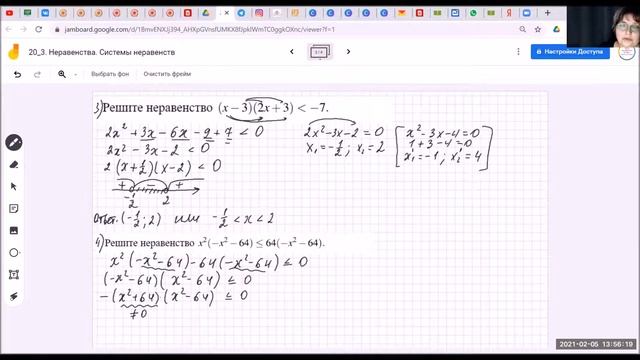 jamboard.google.com/d/1BmvENXJj394_AHXpGVnsfUMKX8fJpklWmTC0ggkOXnc/viewer?f=1
20_3. Неравенства. Системы неравенств
1/4
Настройки Доступа
Выбрать фон
Очистить фрейм
3) Решите неравенство (x−3)(2x+3) < −7.
2x² + 3x − 6x − 9 + 7 < 0
2x² − 3x − 2 < 0
2(x+1/2)(x−2) < 0
+ − +
−1/2 2
Ответ: (−1/2; 2) или −1/2 < x < 2
2x²−3x−2 = 0
x₁=−1/2; x₂=2
x²−3x−4=0
1+3−4=0
x₁=−1; x₂=4
4) Решите неравенство x²(−x²−64) ≤ 64(−x²−64).
x²(−x²−64) − 64(−x²−64) ≤ 0
(−x²−64)(x²−64) ≤ 0
−(x²+64)(x²−64) ≤ 0
≠0
2021-02-05 13:56:19